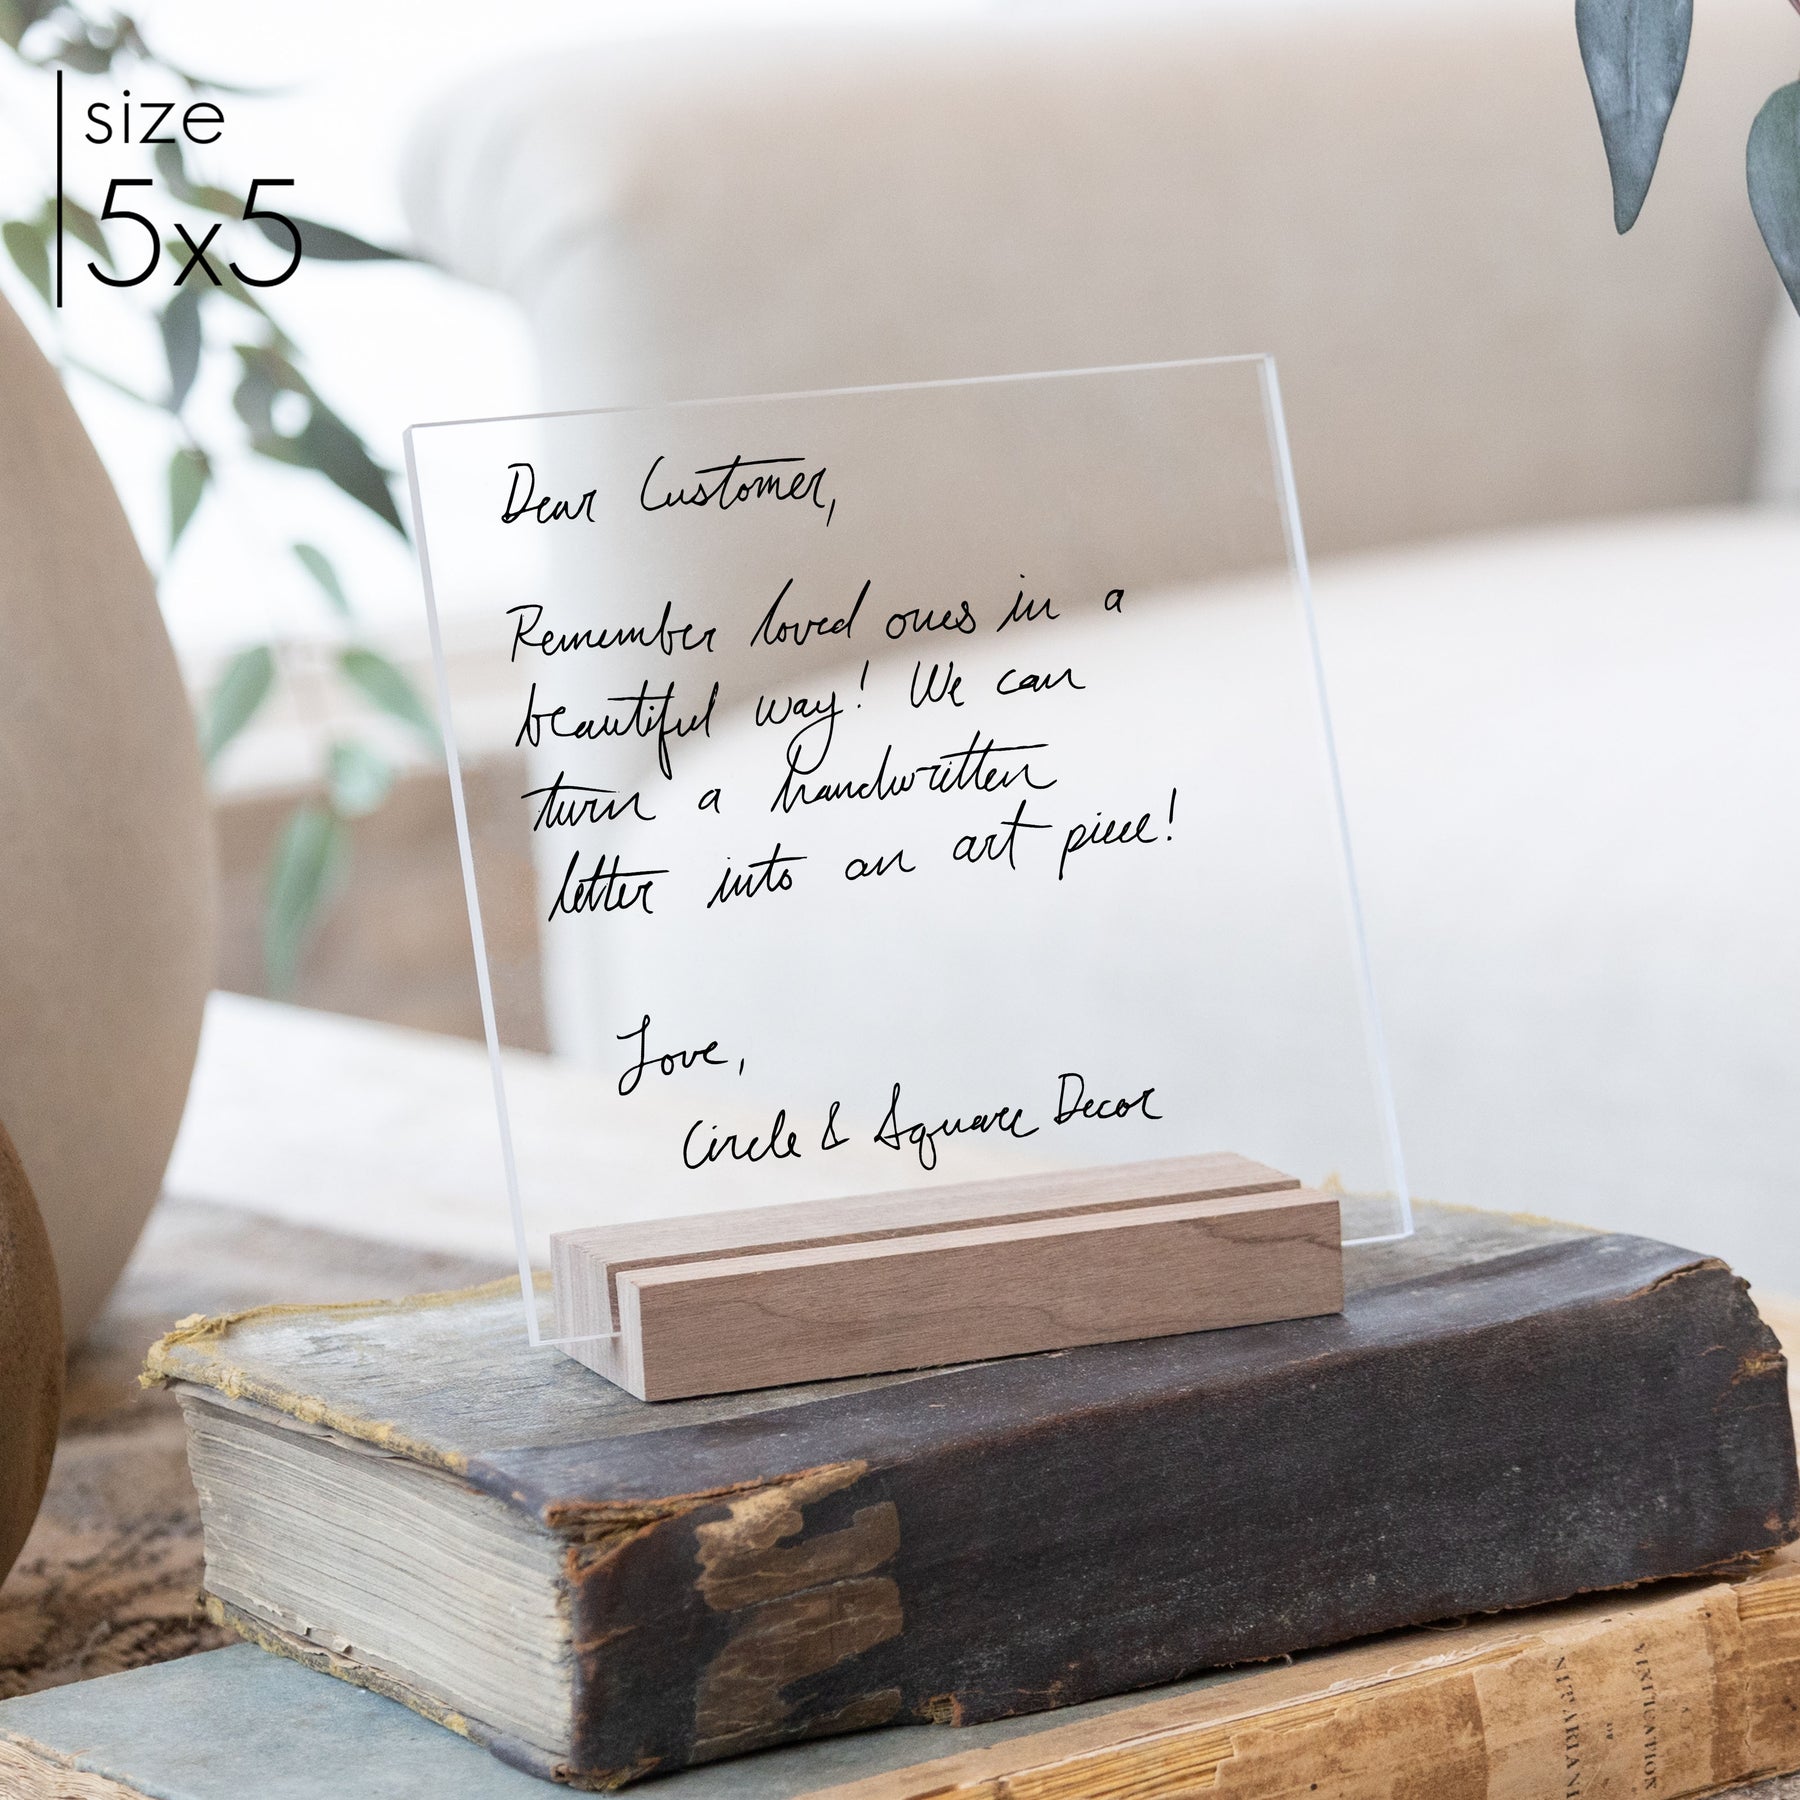 size
5x5
Dear Customer,
Remember loved ones in a
beautiful way! We can
turn a handwritten
letter into an art piece!
Love,
Circle & Square Decor
VINDICATION
OF
UNITARIANI